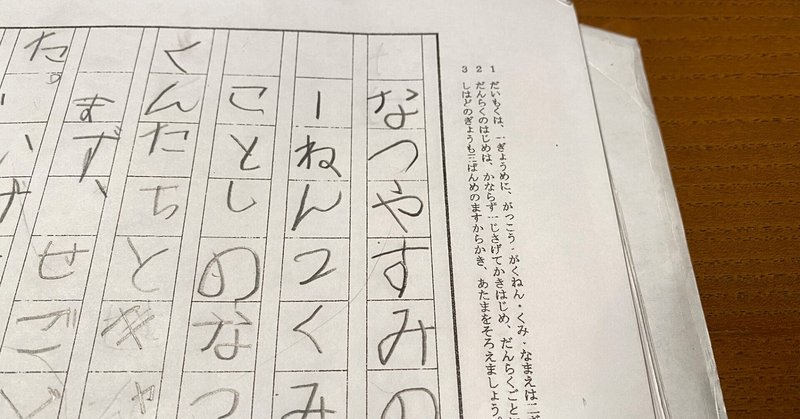 1 だいもくは、一ぎょうめに、がっこう・がくねん・くみ・なまえは二ぎ
2 だんらくのはじめは、かならず一じさげてかきはじめ、だんらくごとに
3 しはどのぎょうも三ばんめのますからかき、あたまをそろえましょう。
なつやすみの
一ねん2くみ
ことしのなつ
くんたちとキャ
まず、せご
た。